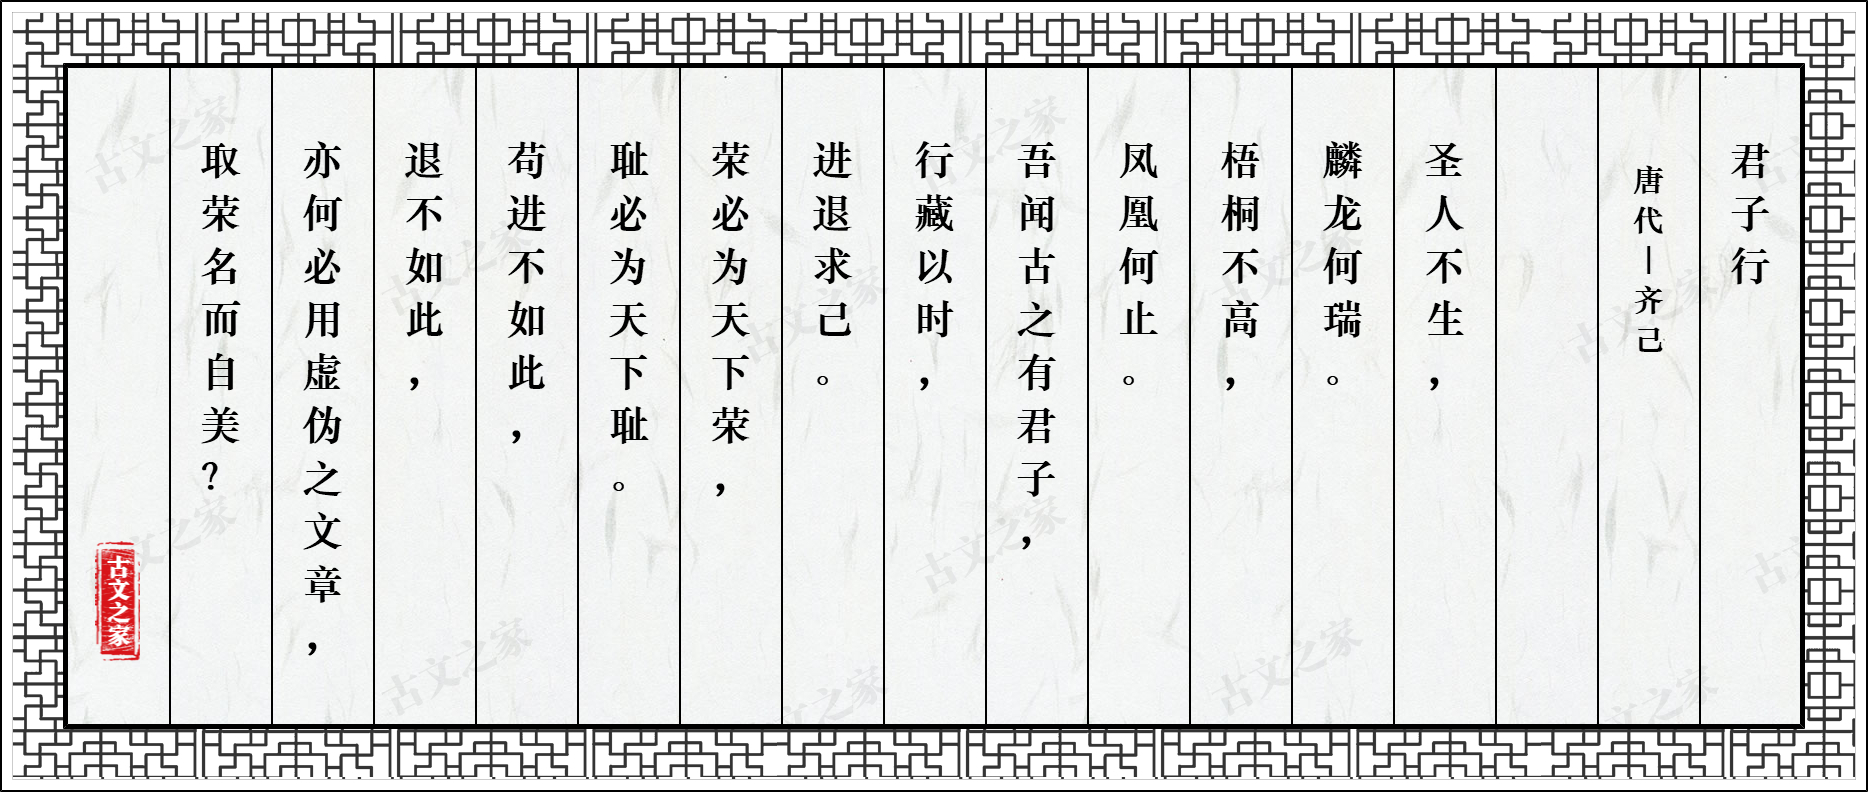 君子行
唐代－齐己
圣人不生，
麟龙何瑞。
梧桐不高，
凤凰何止。
吾闻古之有君子，
行藏以时，
进退求己。
荣必为天下荣，
耻必为天下耻。
苟进不如此，
退不如此，
亦何必用虚伪之文章，
取荣名而自美？
古文之家